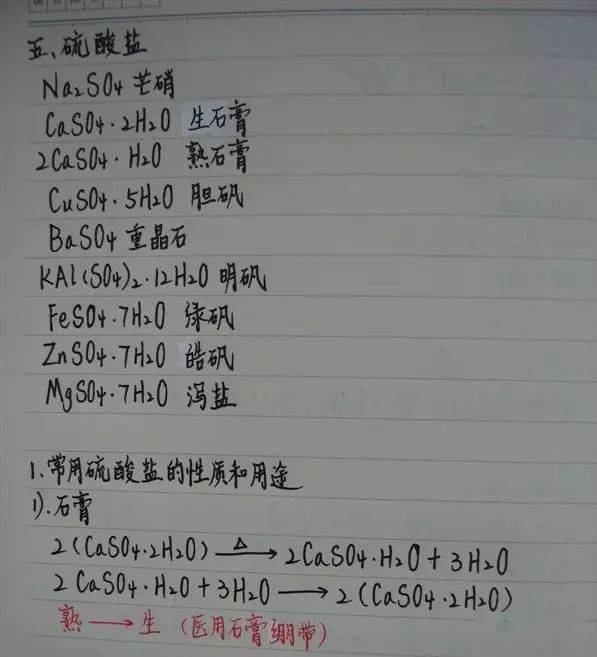 五、硫酸盐
Na₂SO₄ 芒硝
CaSO₄·2H₂O 生石膏
2CaSO₄·H₂O 熟石膏
CuSO₄·5H₂O 胆矾
BaSO₄ 重晶石
KAl(SO₄)₂·12H₂O 明矾
FeSO₄·7H₂O 绿矾
ZnSO₄·7H₂O 皓矾
MgSO₄·7H₂O 泻盐
1.常用硫酸盐的性质和用途
1).石膏
2(CaSO₄·2H₂O) —△→ 2CaSO₄·H₂O + 3H₂O
2CaSO₄·H₂O + 3H₂O ⟶ 2(CaSO₄·2H₂O)
熟 ⟶ 生 (医用石膏绷带)